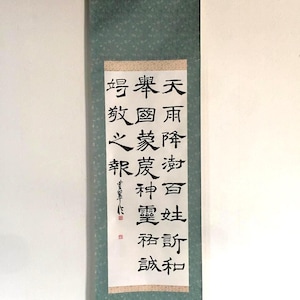 天雨降澍百姓訢和
舉國蒙慶神靈祐誠
竭敬之報